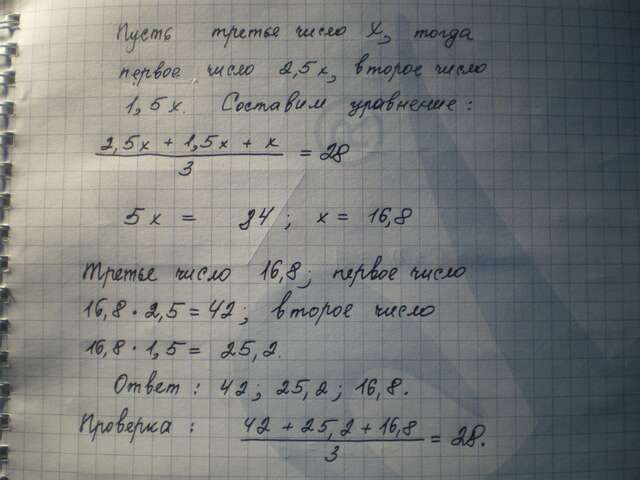 Пусть третье число x, тогда
первое число 2,5x, второе число
1,5x. Составим уравнение:
2,5x + 1,5x + x / 3 = 28
5x = 84; x = 16,8
Третье число 16,8; первое число
16,8 · 2,5 = 42; второе число
16,8 · 1,5 = 25,2.
Ответ: 42; 25,2; 16,8.
Проверка: 42 + 25,2 + 16,8 / 3 = 28.